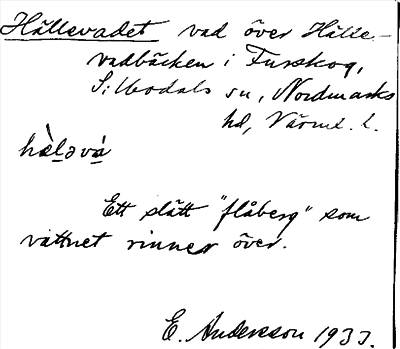 Hällevadet vad över Hälle-
vadbäcken i Furskog,
Silbodals sn, Nordmarks
hd, Värml. l.
hæ̀ləvá
Ett slätt "flåberg" som
vattnet rinner över.
E. Andersson 1933.